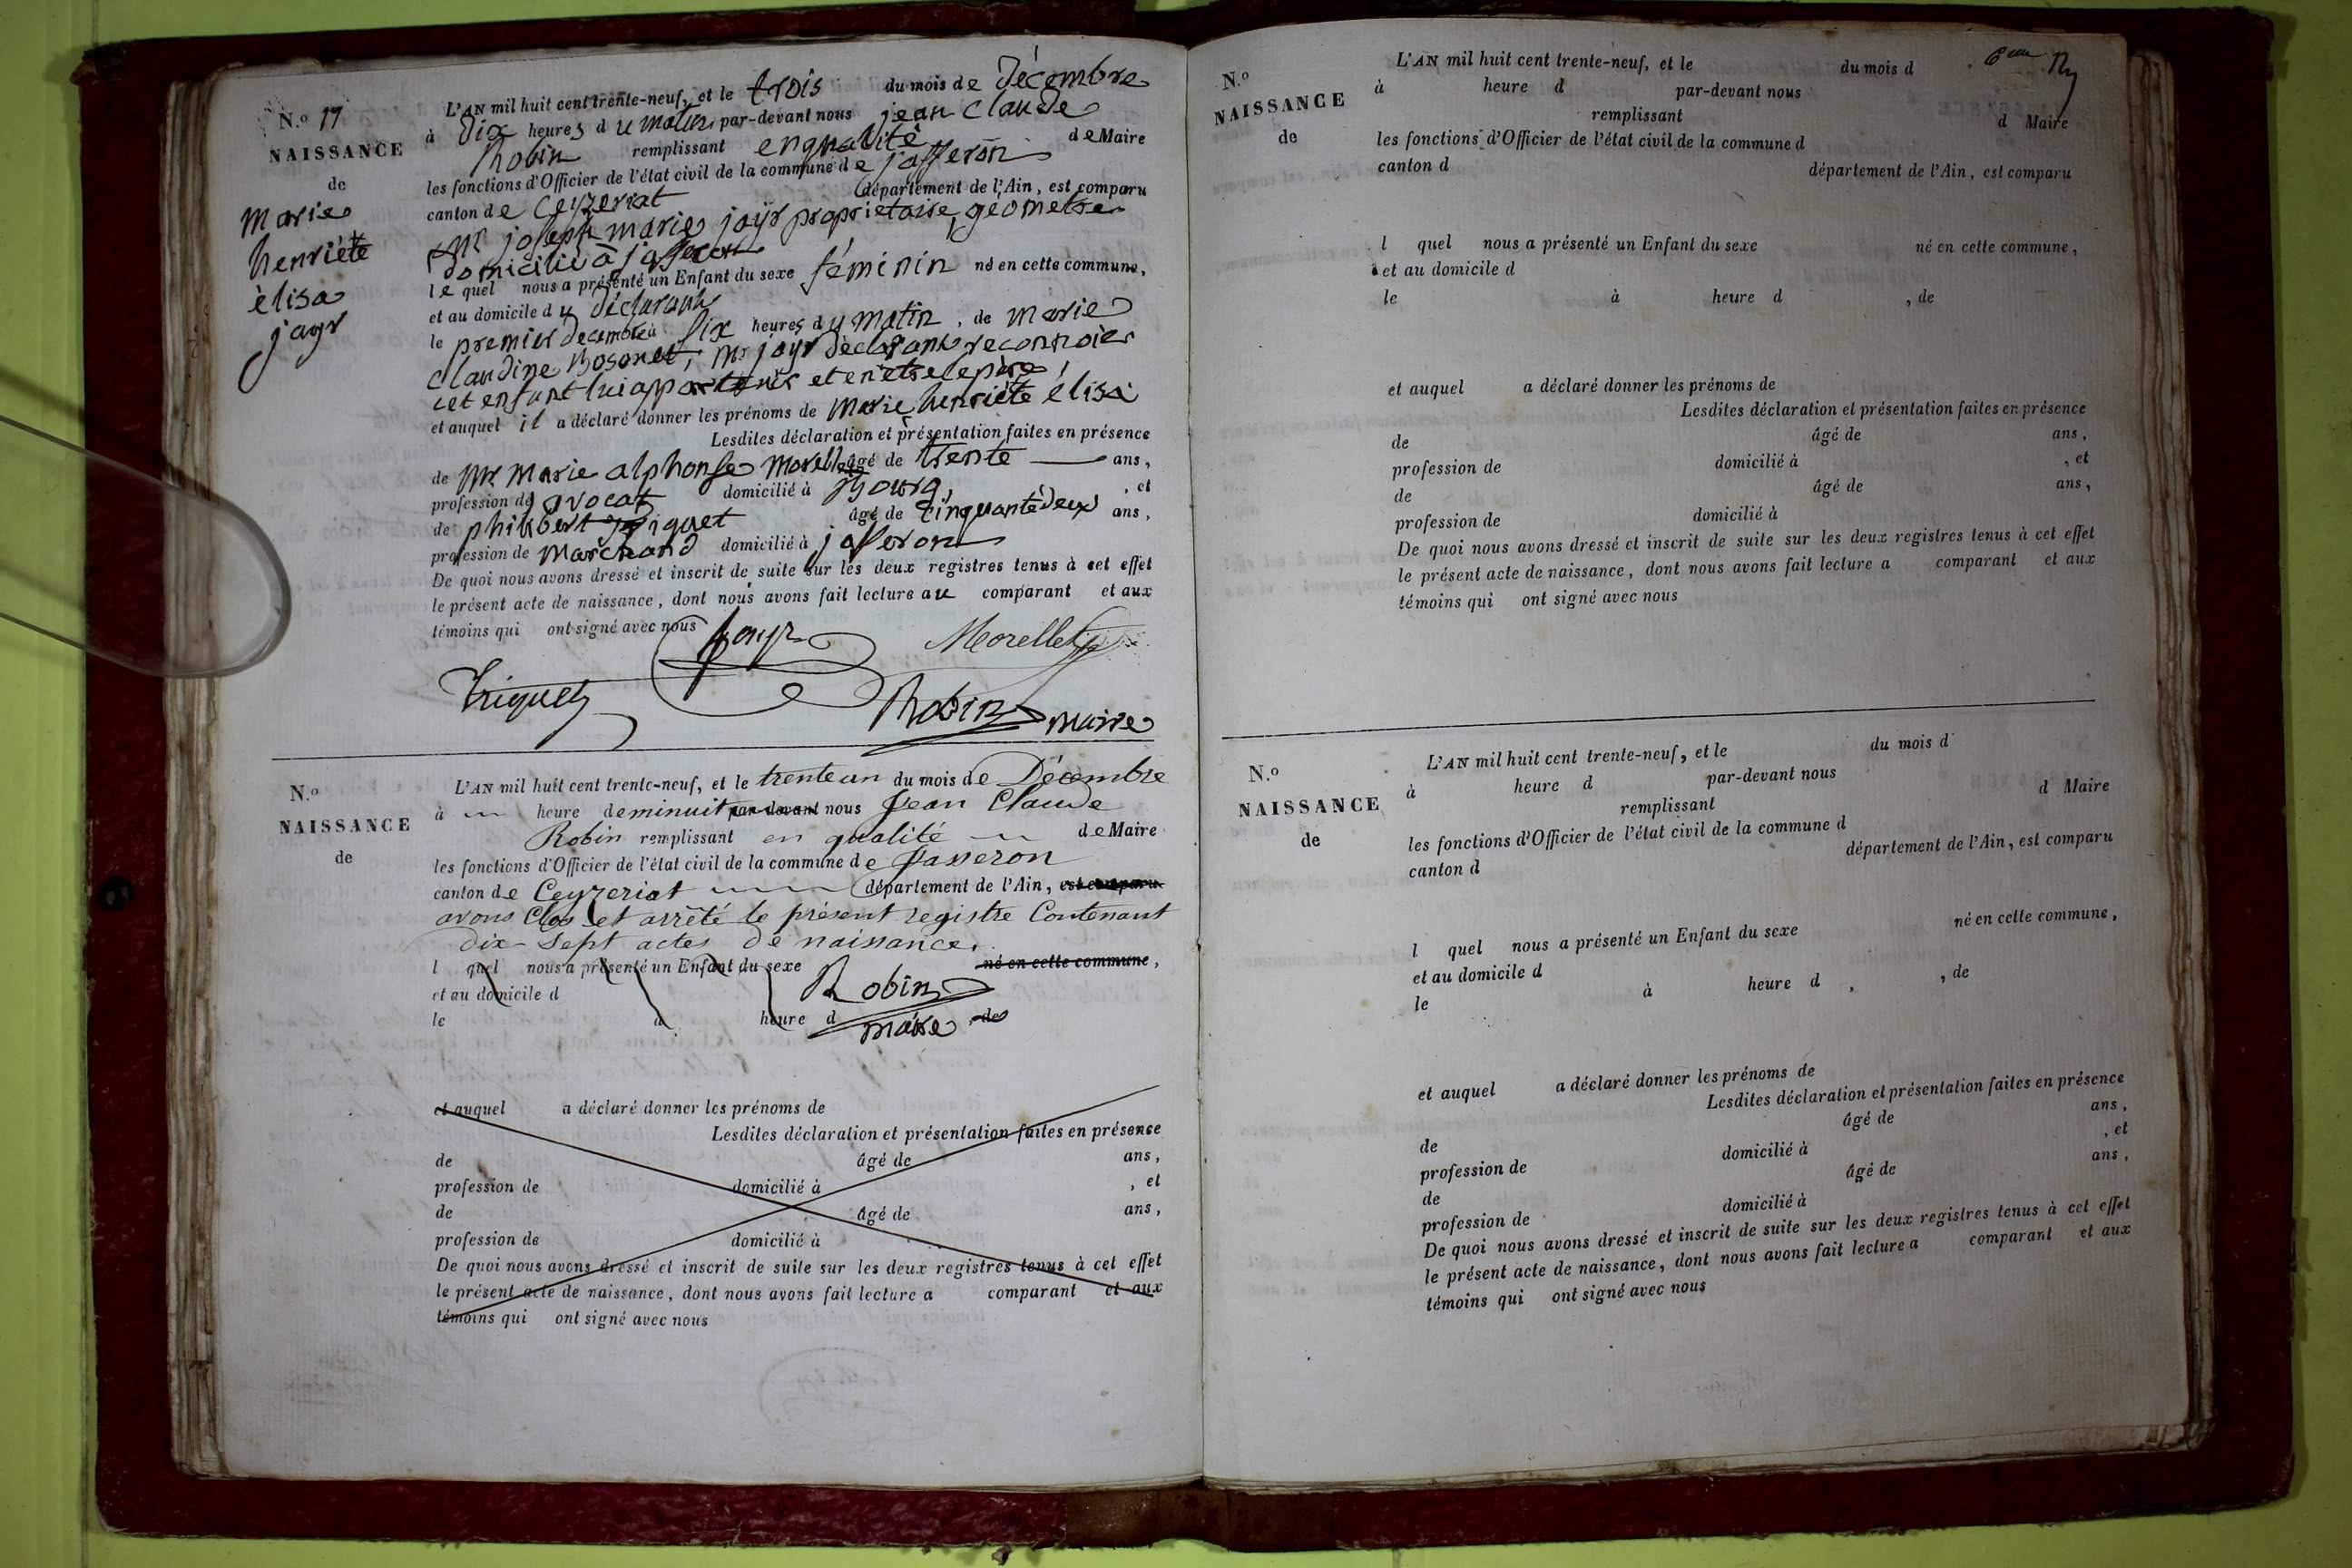 N.o 17
NAISSANCE
de
marie
henriéte
èlisa
jayr
L'AN mil huit cent trente-neuf, et le trois du mois de Décembre
à Dix heures du matin par-devant nous jean claude
Robin remplissant enqualité de Maire
les fonctions d'Officier de l'état civil de la commune de jasseron
canton de Ceyzeriat département de l'Ain, est comparu
Mr joseph marie jaÿr propriétaire géometre
domicilié à jasseron
lequel nous a présenté un Enfant du sexe féminin né en cette commune,
et au domicile du déclarant
le premier decembre à Six heures du matin, de marie
claudine Bosonet, Mr jayr déclarant reconnoier
cet enfant lui appartenir et en etre le père,
et auquel il a déclaré donner les prénoms de marie henriéte élisa
Lesdites déclaration et présentation faites en présence
de Mr marie alphonse Morellet âgé de trente ans,
profession de avocat domicilié à Bourg, , et
de philibert triquet âgé de Cinquante deux ans,
profession de marchand domicilié à jasseron
De quoi nous avons dressé et inscrit de suite sur les deux registres tenus à cet effet
le présent acte de naissance, dont nous avons fait lecture au comparant et aux
témoins qui ont signé avec nous
Jayr Morellet
Triquet Robin maire
N.o
NAISSANCE
de
L'AN mil huit cent trente-neuf, et le trente un du mois de Décembre
à heure de minuit par-devant nous Jean Claude
Robin remplissant en qualité de Maire
les fonctions d'Officier de l'état civil de la commune de Jasseron
canton de Ceyzeriat département de l'Ain, est comparu
avons Clos et arrêté le présent registre Contenant
dix-Sept actes de naissance.
l quel nous a présenté un Enfant du sexe né en cette commune,
et au domicile d Robin
le à heure d maire , de
et auquel a déclaré donner les prénoms de
Lesdites déclaration et présentation faites en présence
de âgé de ans,
profession de domicilié à , et
de âgé de ans,
profession de domicilié à
De quoi nous avons dressé et inscrit de suite sur les deux registres tenus à cet effet
le présent acte de naissance, dont nous avons fait lecture a comparant et aux
témoins qui ont signé avec nous
N.o
NAISSANCE
de
L'AN mil huit cent trente-neuf, et le du mois d
à heure d par-devant nous
remplissant d Maire
les fonctions d'Officier de l'état civil de la commune d
canton d département de l'Ain, est comparu
l quel nous a présenté un Enfant du sexe né en cette commune,
et au domicile d
le à heure d , de
et auquel a déclaré donner les prénoms de
Lesdites déclaration et présentation faites en présence
de âgé de ans,
profession de domicilié à , et
de âgé de ans,
profession de domicilié à
De quoi nous avons dressé et inscrit de suite sur les deux registres tenus à cet effet
le présent acte de naissance, dont nous avons fait lecture a comparant et aux
témoins qui ont signé avec nous
N.o
NAISSANCE
de
L'AN mil huit cent trente-neuf, et le du mois d
à heure d par-devant nous
remplissant d Maire
les fonctions d'Officier de l'état civil de la commune d
canton d département de l'Ain, est comparu
l quel nous a présenté un Enfant du sexe né en cette commune,
et au domicile d
le à heure d , de
et auquel a déclaré donner les prénoms de
Lesdites déclaration et présentation faites en présence
de âgé de ans,
profession de domicilié à , et
de âgé de ans,
profession de domicilié à
De quoi nous avons dressé et inscrit de suite sur les deux registres tenus à cet effet
le présent acte de naissance, dont nous avons fait lecture a comparant et aux
témoins qui ont signé avec nous